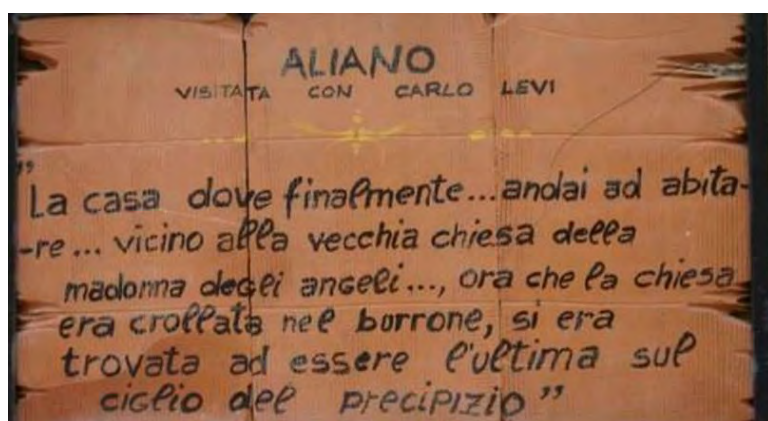 ALIANO
VISITATA CON CARLO LEVI
"La casa dove finalmente...andai ad abita-
-re... vicino alla vecchia chiesa della
madonna degli angeli..., ora che la chiesa
era crollata nel burrone, si era
trovata ad essere l'ultima sul
ciglio del precipizio"